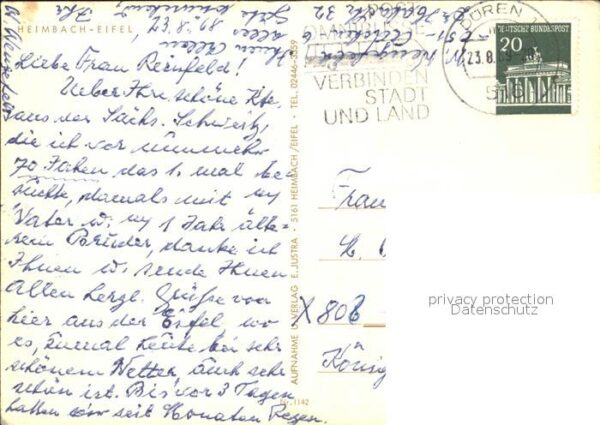 HEIMBACH-EIFEL
23.8.69
Liebe Frau Reinfeld!
Ueber Ihre schöne Kte.
aus der Sächs. Schweiz,
die ich vor nunmehr
70 Jahren das 1. mal be-
suchte, damals mit my
Vater u. my 1 Jahr älte-
ren Bruder, danke ich
Ihnen u. sende Ihnen
Allen herzl. Grüße von
hier aus der Eifel, wo
es, zumal heute bei sehr
schönem Wetter, auch sehr
schön ist. Bis vor 3 Tagen
hatten wir seit Monaten Regen.
AUFNAHME U. VERLAG E. JUSTRA · 5161 HEIMBACH/EIFEL · TEL. 02446-559
Nr. 1142
VERBINDEN
STADT
UND LAND
DÜREN 1
23.8.69
516
DEUTSCHE BUNDESPOST
20
Frau
X 806
König
privacy protection
Datenschutz